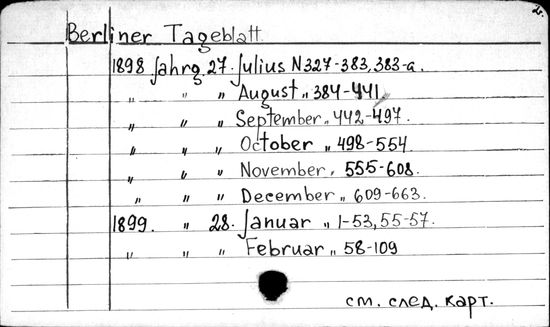 2.
Berliner Tageblatt.
1898 Jahrg. 27. Julius N 327-383, 383-a.
„ „ „ August „ 384-441
„ „ „ September „ 442-497.
„ „ „ October „ 498-554.
„ „ „ November „ 555-608.
„ „ „ December „ 609-663.
1899. „ 28. Januar „ 1-53, 55-57.
„ „ „ Februar „ 58-109
см. след. карт.